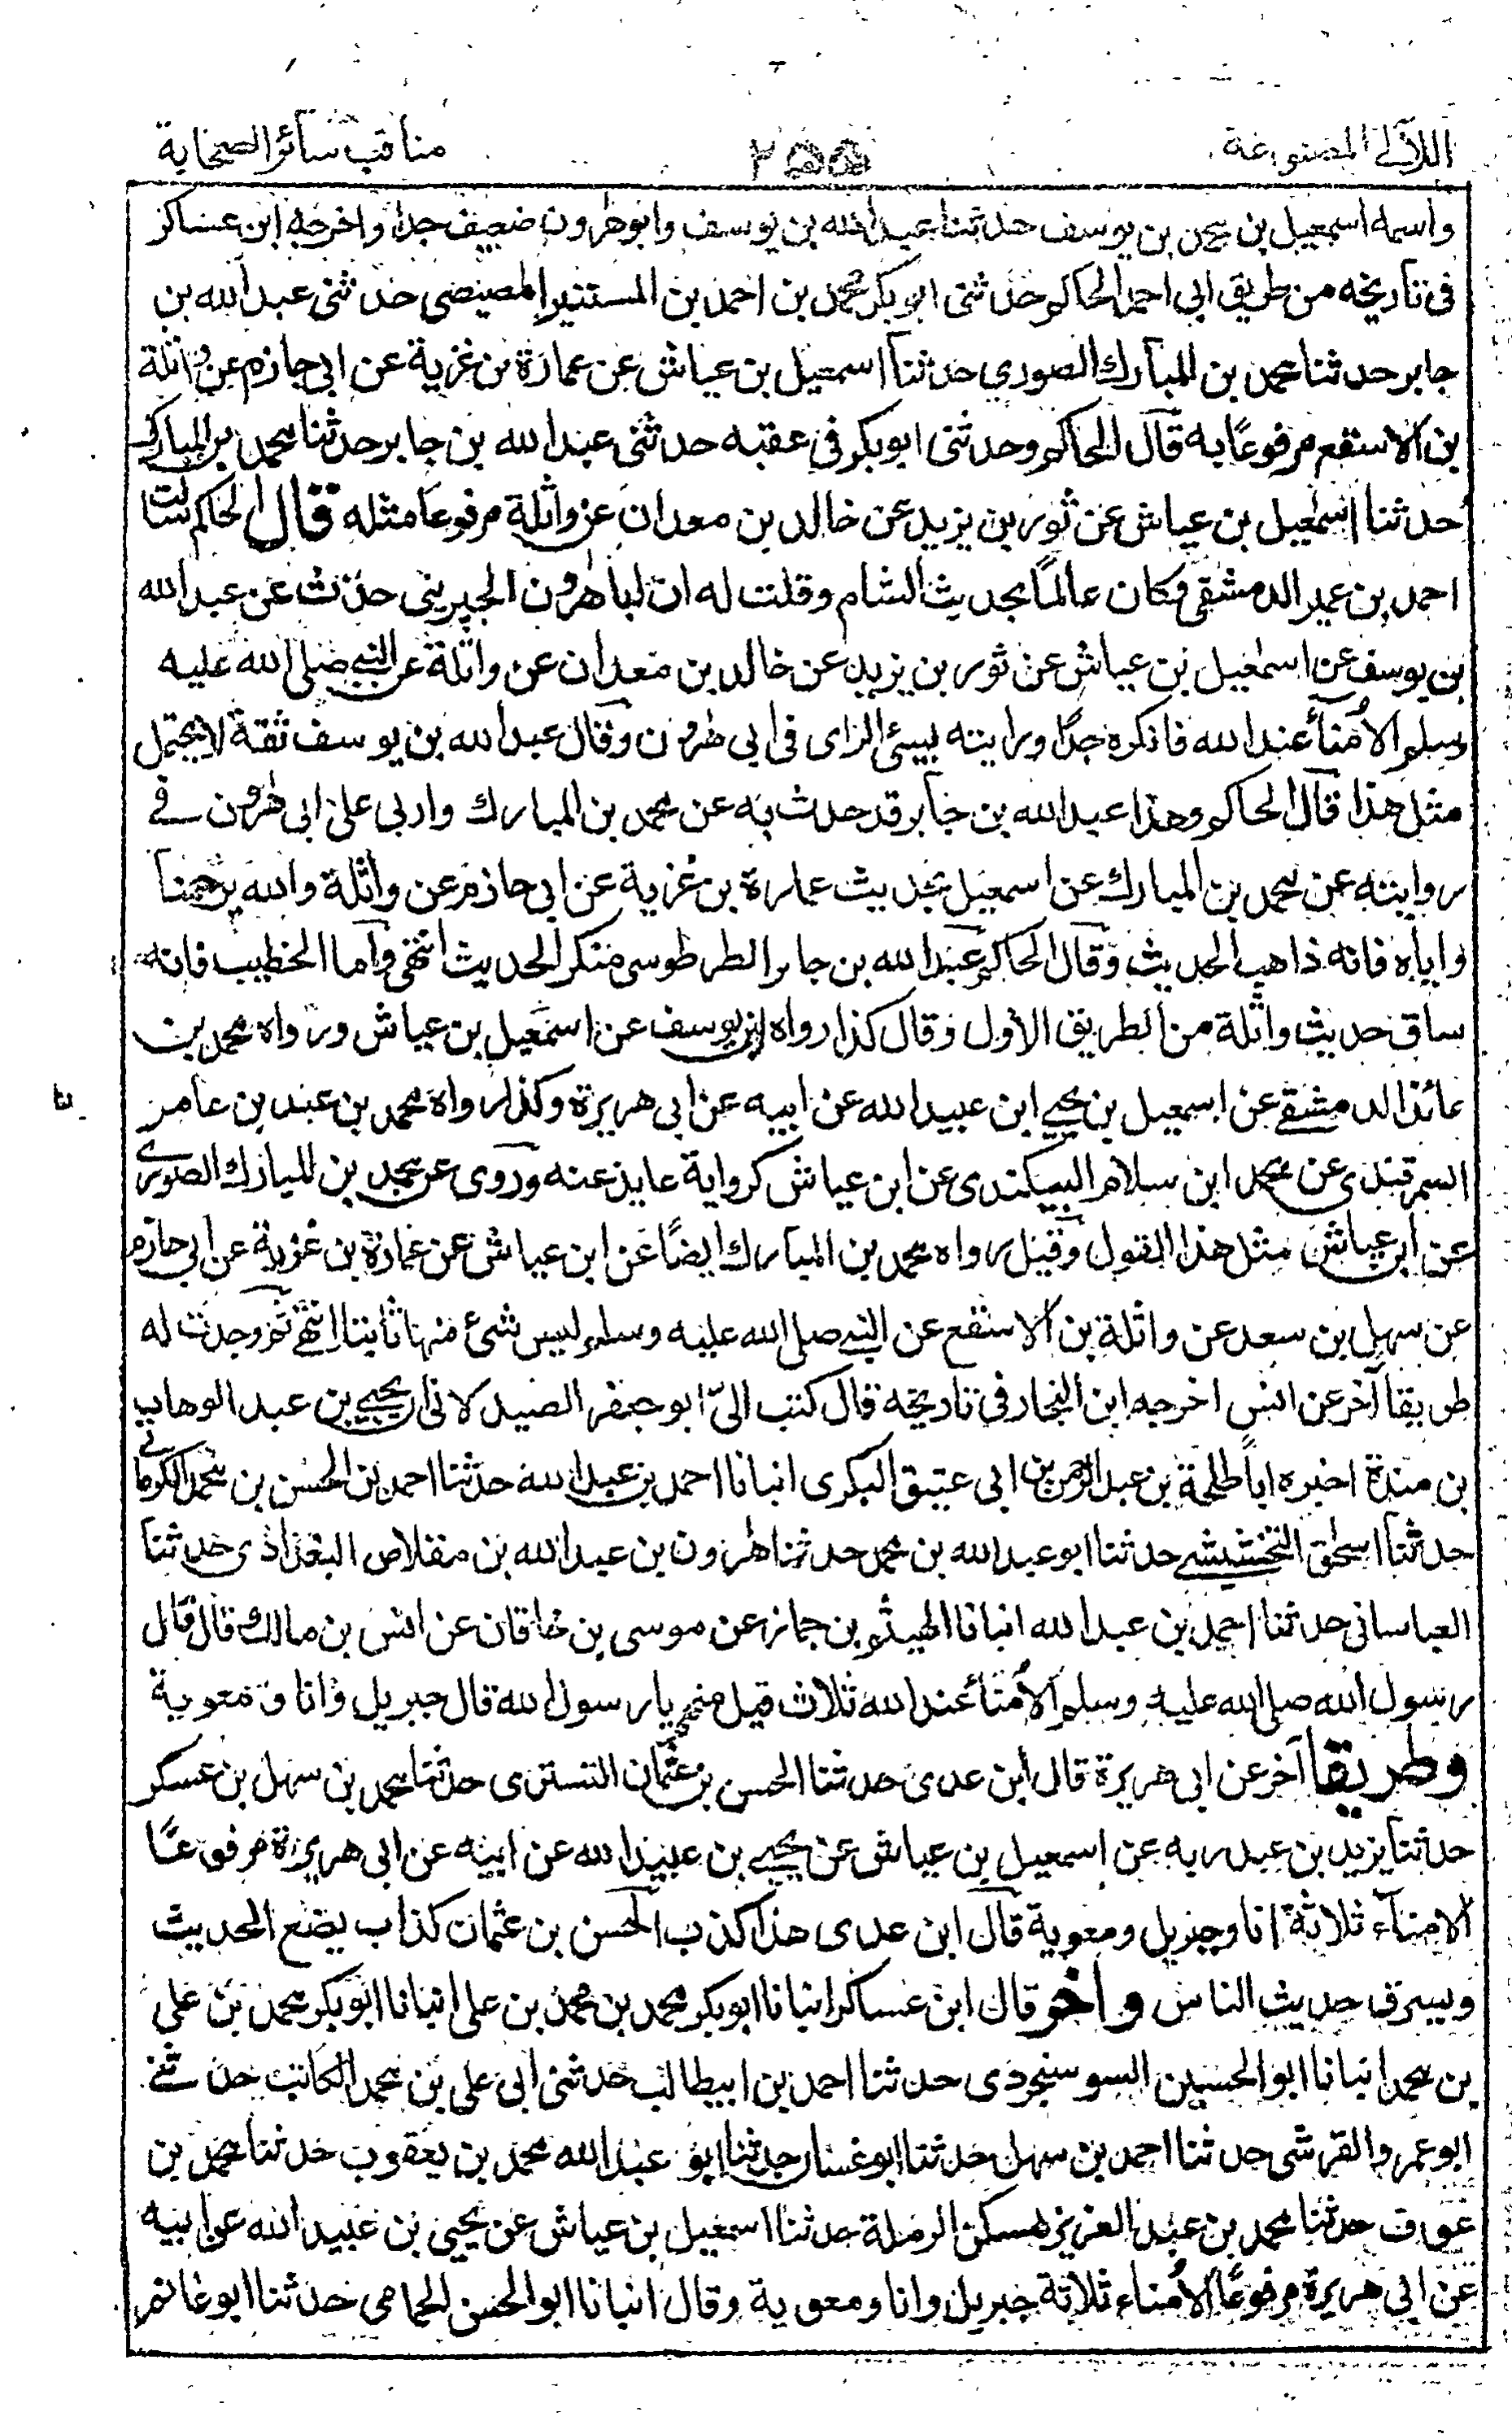 اللآلى المصنوعة ٢٥٥ مناقب سائر الصحابة
واسمه اسمعيل بن محمد بن يوسف حدثنا عبد الله بن يوسف وابو هرون ضعيف جدا واخرجه ابن عساكر
فى تاريخه من طريق ابى احمد الحاكم حدثنى ابو بكر محمد بن احمد بن المستنير المصيصى حدثنى عبد الله بن
جابر حدثنا محمد بن المبارك الصورى حدثنا اسمعيل بن عياش عن عمارة بن غزية عن ابى حازم عن واثلة
بن الاسقع مرفوعًا به قال الحاكم وحدثنى ابو بكر فى عقبه حدثنى عبد الله بن جابر حدثنا محمد بن المبارك
حدثنا اسمعيل بن عياش عن ثور بن يزيد عن خالد بن معدان عن واثلة مرفوعا مثله قال الحاكم سالت
احمد بن عمير الدمشقى وكان عالمًا بحديث الشام وقلت له ان لابا هرون الجبرينى حدث عن عبد الله
بن يوسف عن اسمعيل بن عياش عن ثور بن يزيد عن خالد بن معدان عن واثلة عن النبى صلى الله عليه
وسلم الأمنأ عند الله فانكره جدًا ورايته يسئ الراى فى ابى هرون وقال عبد الله بن يوسف ثقة لا يحتمل
مثل هذا قال الحاكم وهذا عبد الله بن جابر قد حدث به عن محمد بن المبارك واربى على ابى هرون فى
روايته عن محمد بن المبارك عن اسمعيل بحديث عمارة بن غزية عن ابى حازم عن واثلة والله يرحمنا
واياه فانه ذاهب الحديث وقال الحاكم عبد الله بن جابر الطرطوسى منكر الحديث انتهى واما الخطيب فانه
ساق حديث واثلة من الطريق الاول وقال كذا رواه ابن يوسف عن اسمعيل بن عياش ورواه محمد بن
عائذ الدمشقى عن اسمعيل بن يحيى ابن عبيد الله عن ابيه عن ابى هريرة وكذا رواه محمد بن عبد بن عامر
السمرقندى عن محمد ابن سلام البيكندى عن ابن عياش كرواية عايذ عنه وروى عن محمد بن المبارك الصورى
عن ابن عياش مثل هذا القول وقيل رواه محمد بن المبارك ايضًا عن ابن عياش عن عمارة بن غزية عن ابى حازم
عن سهل بن سعد عن واثلة بن الاسقع عن النبى صلى الله عليه وسلم ليس شئ منها ثابتا انتهى ثم وجدت له
طريقا آخر عن انس اخرجه ابن النجار فى تاريخه قال كتب الىّ ابو جعفر الصيدلانى ان يحيى بن عبد الوهاب
بن مندة اخبره ابا طلحة بن عبد الرحمن بن ابى عتيق البكرى انبانا احمد بن عبد الله حدثنا احمد بن الحسن بن محمد الكرمانى
حدثنا اسحق حدثنا ابو عبد الله بن محمد حدثنا هرون بن عبد الله بن مقلاص البغدادى حدثنا
العباسانى حدثنا احمد بن عبد الله انبانا الهيثم بن جماز عن موسى بن خاقان عن انس بن مالك قال قال
رسول الله صلى الله عليه وسلم الأمنأ عند الله ثلاث قيل منهم يا رسول الله قال جبريل وانا و معوية
وطريقا آخر عن ابى هريرة قال ابن عدى حدثنا الحسن بن عثمان التسترى حدثنا محمد بن سهل بن عسكر
حدثنا يزيد بن عبد ربه عن اسمعيل بن عياش عن يحيى بن عبيد الله عن ابيه عن ابى هريرة مرفوعًا
الامنآء ثلاثة انا وجبريل ومعوية قال ابن عدى هذا كذب الحسن بن عثمان كذاب يضع الحديث
ويسرق حديث الناس وآخر قال ابن عساكر انبانا ابو بكر محمد بن محمد بن على انبانا ابو بكر محمد بن على
بن محمد انبانا ابو الحسين السوسنجردى حدثنا احمد بن ابيطالب حدثنى ابى على بن محمد الكاتب حدثنى
ابو عمرو القرشى حدثنا احمد بن سهل حدثنا ابو غسان حدثنا ابو عبد الله محمد بن يعقوب حدثنا محمد بن
عوف حدثنا محمد بن عبد العزيز مسكن الرملة حدثنا اسمعيل بن عياش عن يحيى بن عبيد الله عن ابيه
عن ابى هريرة مرفوعًا الأمناء ثلاثة جبريل وانا ومعوية وقال انبانا ابو الحسن الحمامى حدثنا ابو غانم